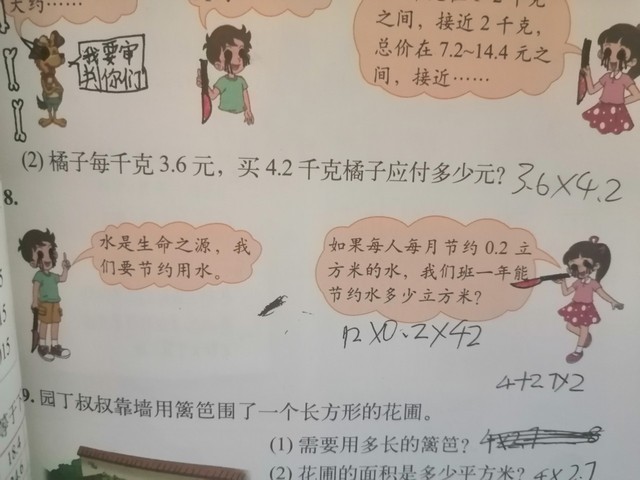 大约……
之间，接近 2 千克，
总价在 7.2~14.4 元之
间，接近……
我要审
判你们
(2) 橘子每千克 3.6 元，买 4.2 千克橘子应付多少元？ 3.6×4.2
8.
水是生命之源，我
们要节约用水。
如果每人每月节约 0.2 立
方米的水，我们班一年能
节约水多少立方米？
12×0.2×42
4+2.7×2
9. 园丁叔叔靠墙用篱笆围了一个长方形的花圃。
(1) 需要用多长的篱笆？
(2) 花圃的面积是多少平方米？ 4×2.7
15
15
18.4